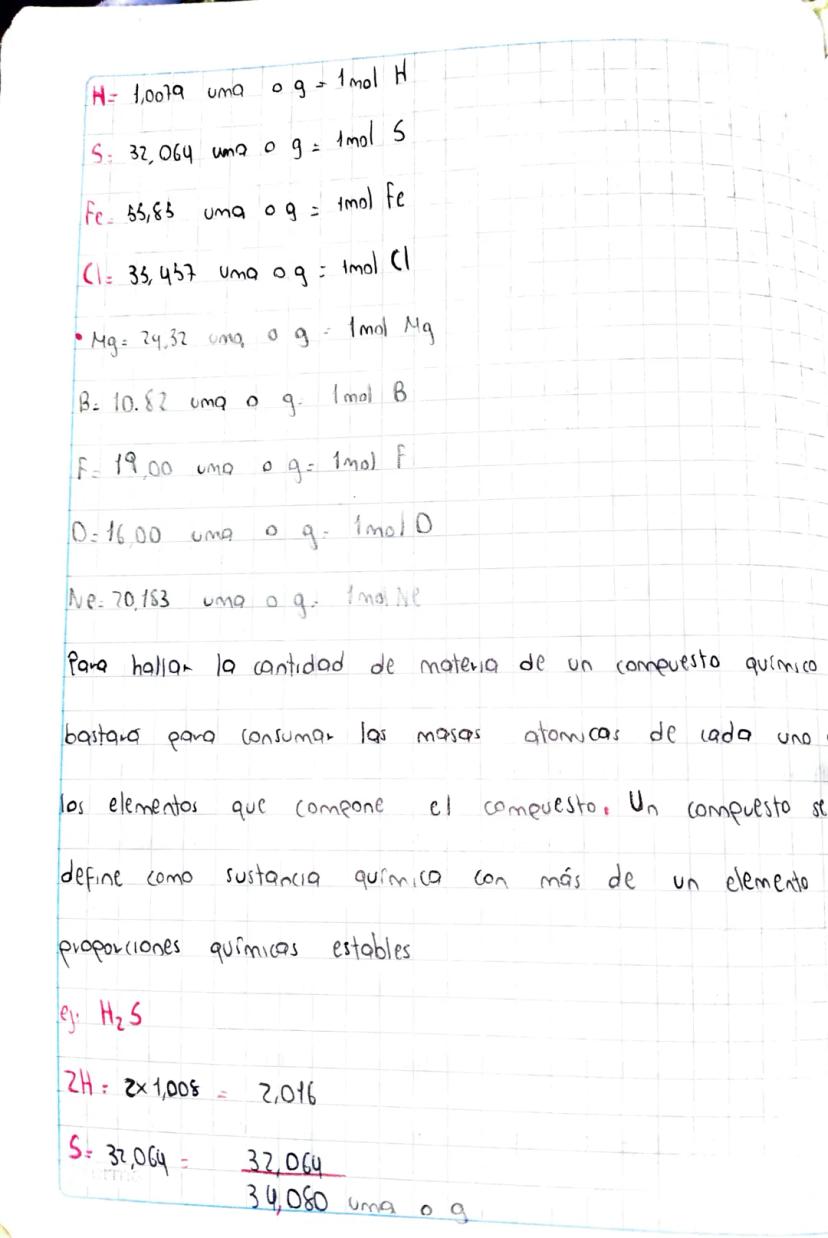 H= 1,0079 uma o g = 1mol H
S= 32,064 uma o g = 1mol S
Fe= 55,85 uma o g = 1mol Fe
Cl= 35,457 uma o g = 1mol Cl
• Mg= 24,32 uma o g = 1mol Mg
B= 10.82 uma o g = 1mol B
F= 19,00 uma o g = 1mol F
O= 16,00 uma o g = 1mol O
Ne= 20,183 uma o g = 1mol Ne
Para hallar la cantidad de materia de un compuesto químico
bastará para consumar las masas atomicas de cada uno
los elementos que compone el compuesto. Un compuesto se
define como sustancia química con más de un elemento
proporciones químicas estables
ej: H₂S
2H= 2x1,008 = 2,016
S= 32,064 = 32,064
34,080 uma o g